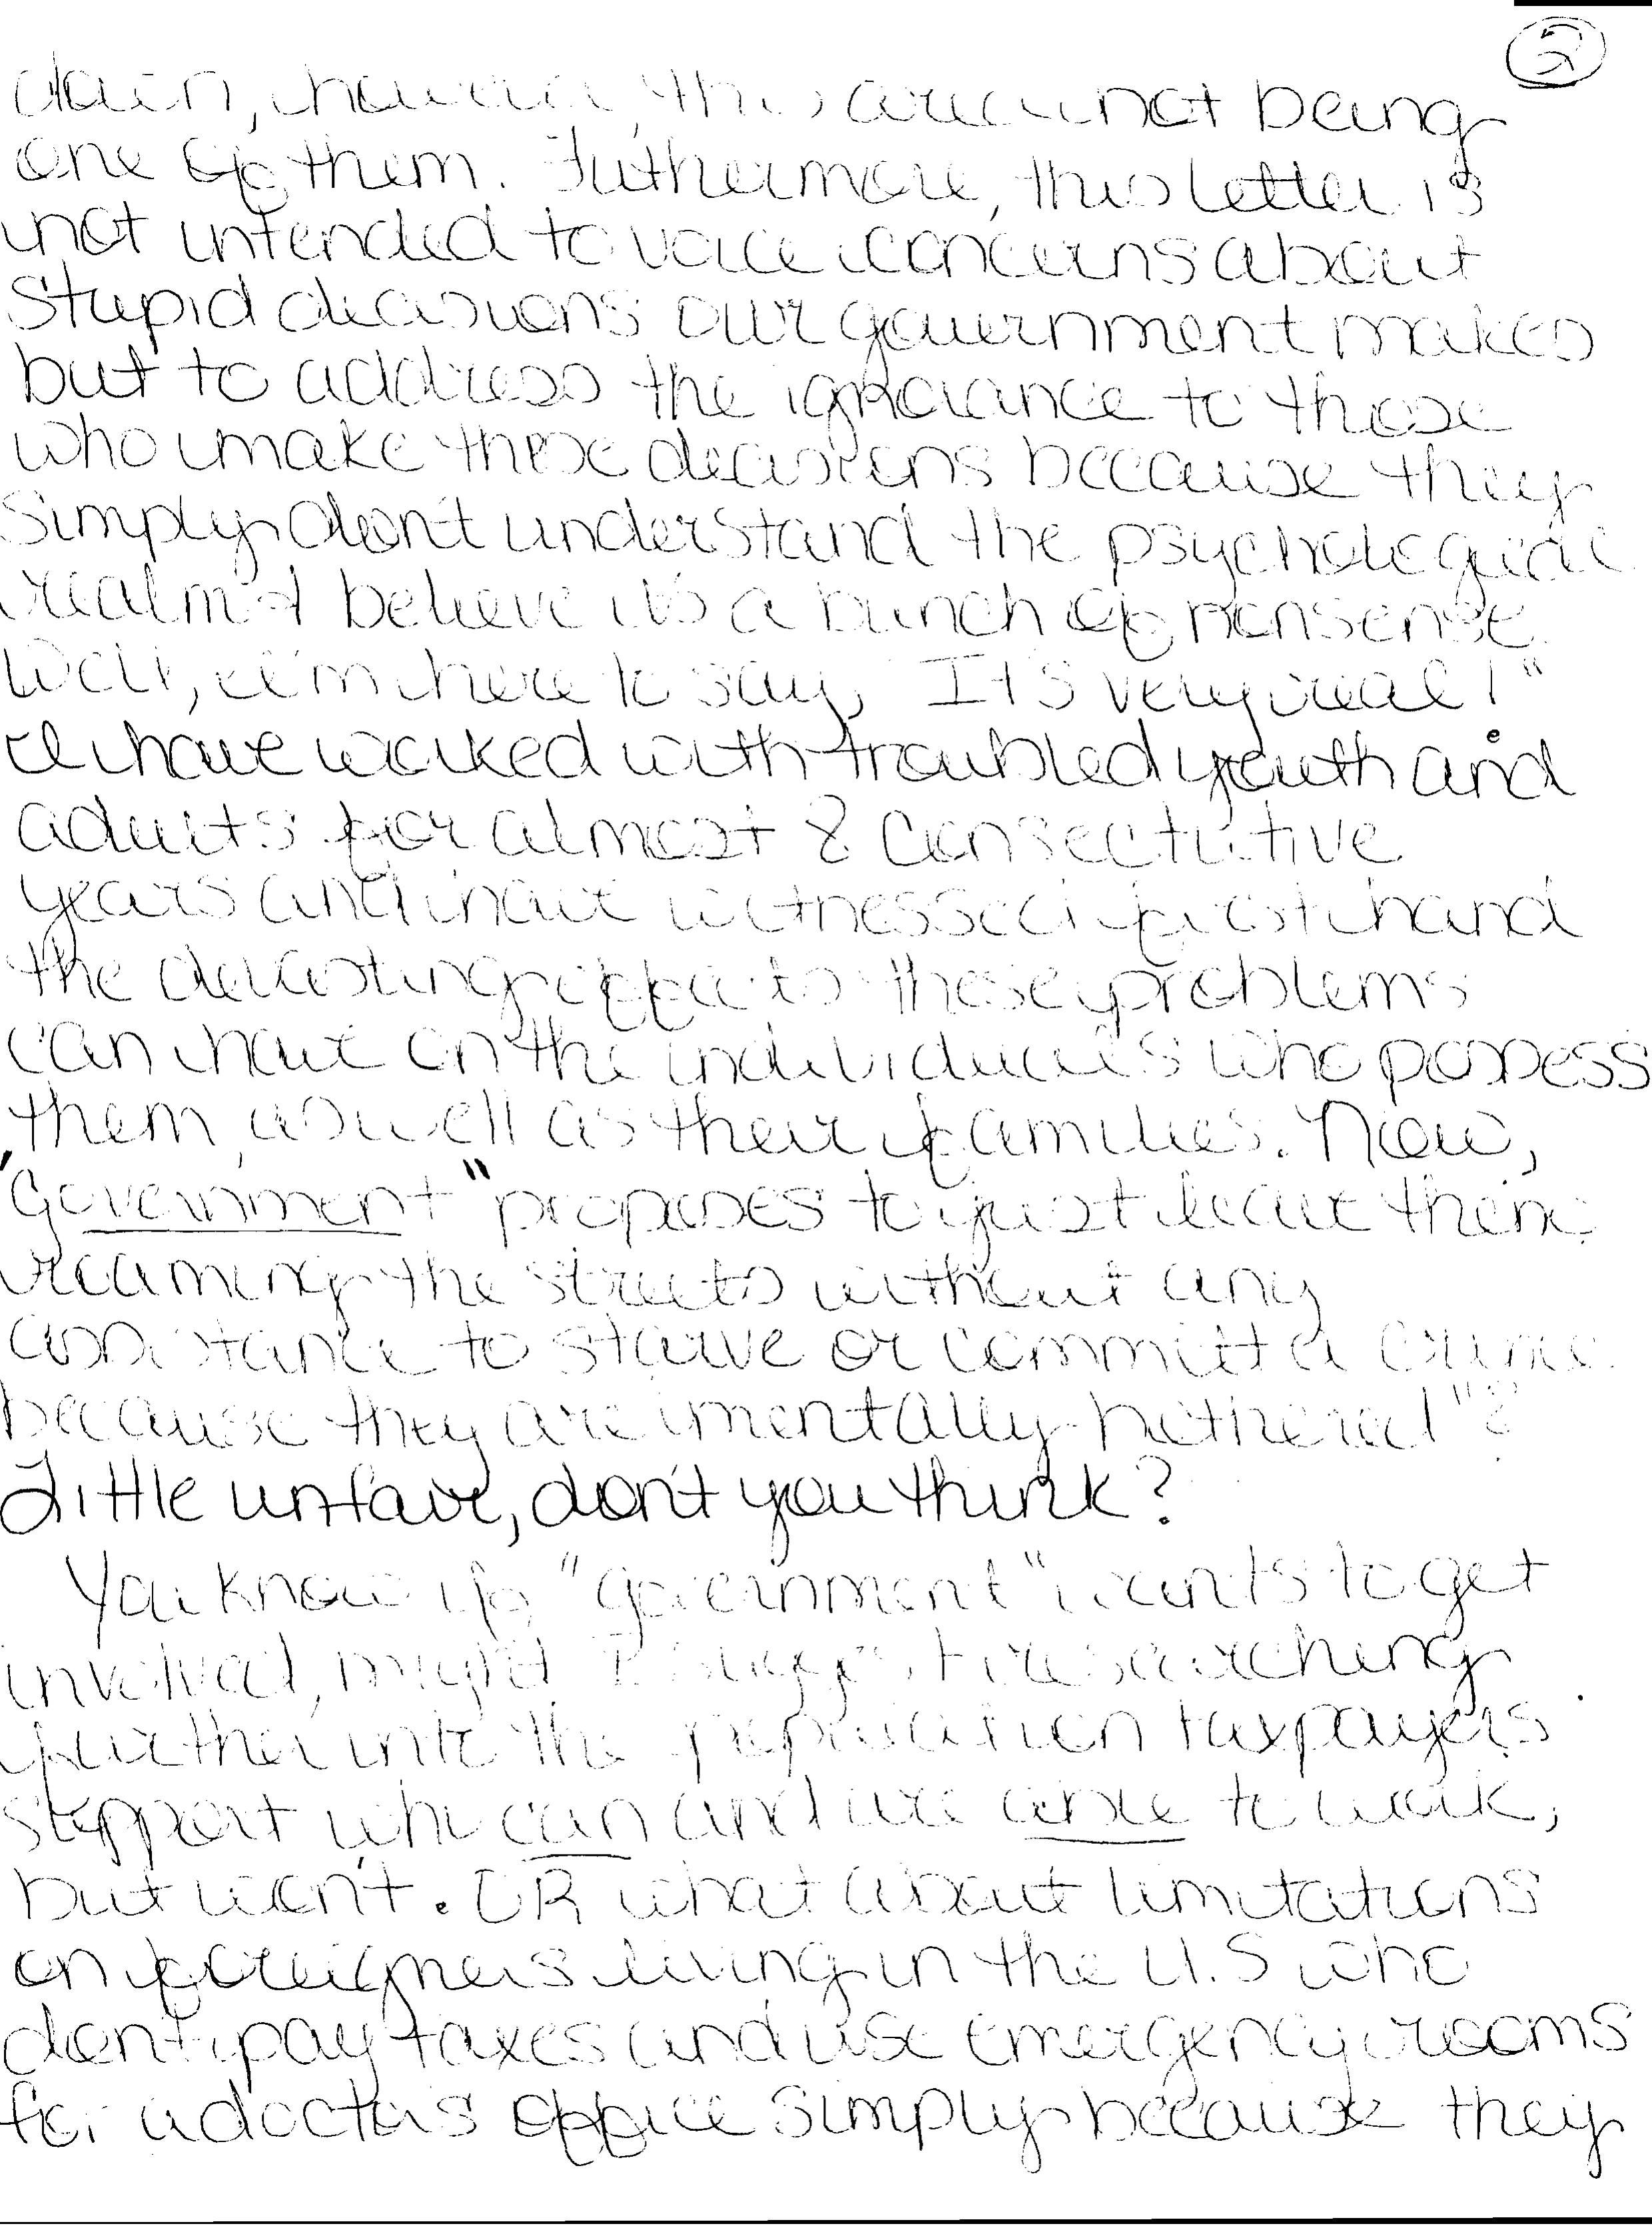 2
down, however, this area not being
one of them. Futhermore, this letter is
not intended to voice concerns about
stupid decisions our government makes
but to address the ignorance to those
who make these decisions because they
simply don't understand the psychological
realm & believe it's a bunch of nonsense.
Well, I'm here to say, "It's very real!"
I have worked with troubled youth and
adults for almost 8 consectutive
years and have witnessed first hand
the devasting effects these problems
can have on the individuals who possess
them, as well as their families. Now,
"Government" proposes to just leave them
roaming the streets without any
assistance to starve or committ a crime
because they are mentally hethered"?
Little unfair, don't you think?
You know if "government" wants to get
involved, might I suggest researching
further into the population taxpayers
support who can and are able to work,
but won't. OR what about limitations
on foreigners living in the U.S who
don't pay taxes and use emergency rooms
for a doctors office simply because they